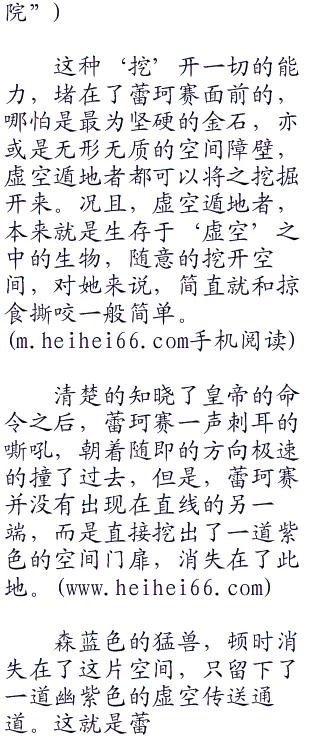 院”)
这种‘挖’开一切的能
力，堵在了蕾珂赛面前的，
哪怕是最为坚硬的金石，亦
或是无形无质的空间障壁，
虚空遁地者都可以将之挖掘
开来。况且，虚空遁地者，
本来就是生存于‘虚空’之
中的生物，随意的挖开空
间，对她来说，简直就和掠
食撕咬一般简单。
(m.heihei66.com手机阅读)
清楚的知晓了皇帝的命
令之后，蕾珂赛一声刺耳的
嘶吼，朝着随即的方向极速
的撞了过去，但是，蕾珂赛
并没有出现在直线的另一
端，而是直接挖出了一道紫
色的空间门扉，消失在了此
地。(www.heihei66.com)
森蓝色的猛兽，顿时消
失在了这片空间，只留下了
一道幽紫色的虚空传送通
道。这就是蕾